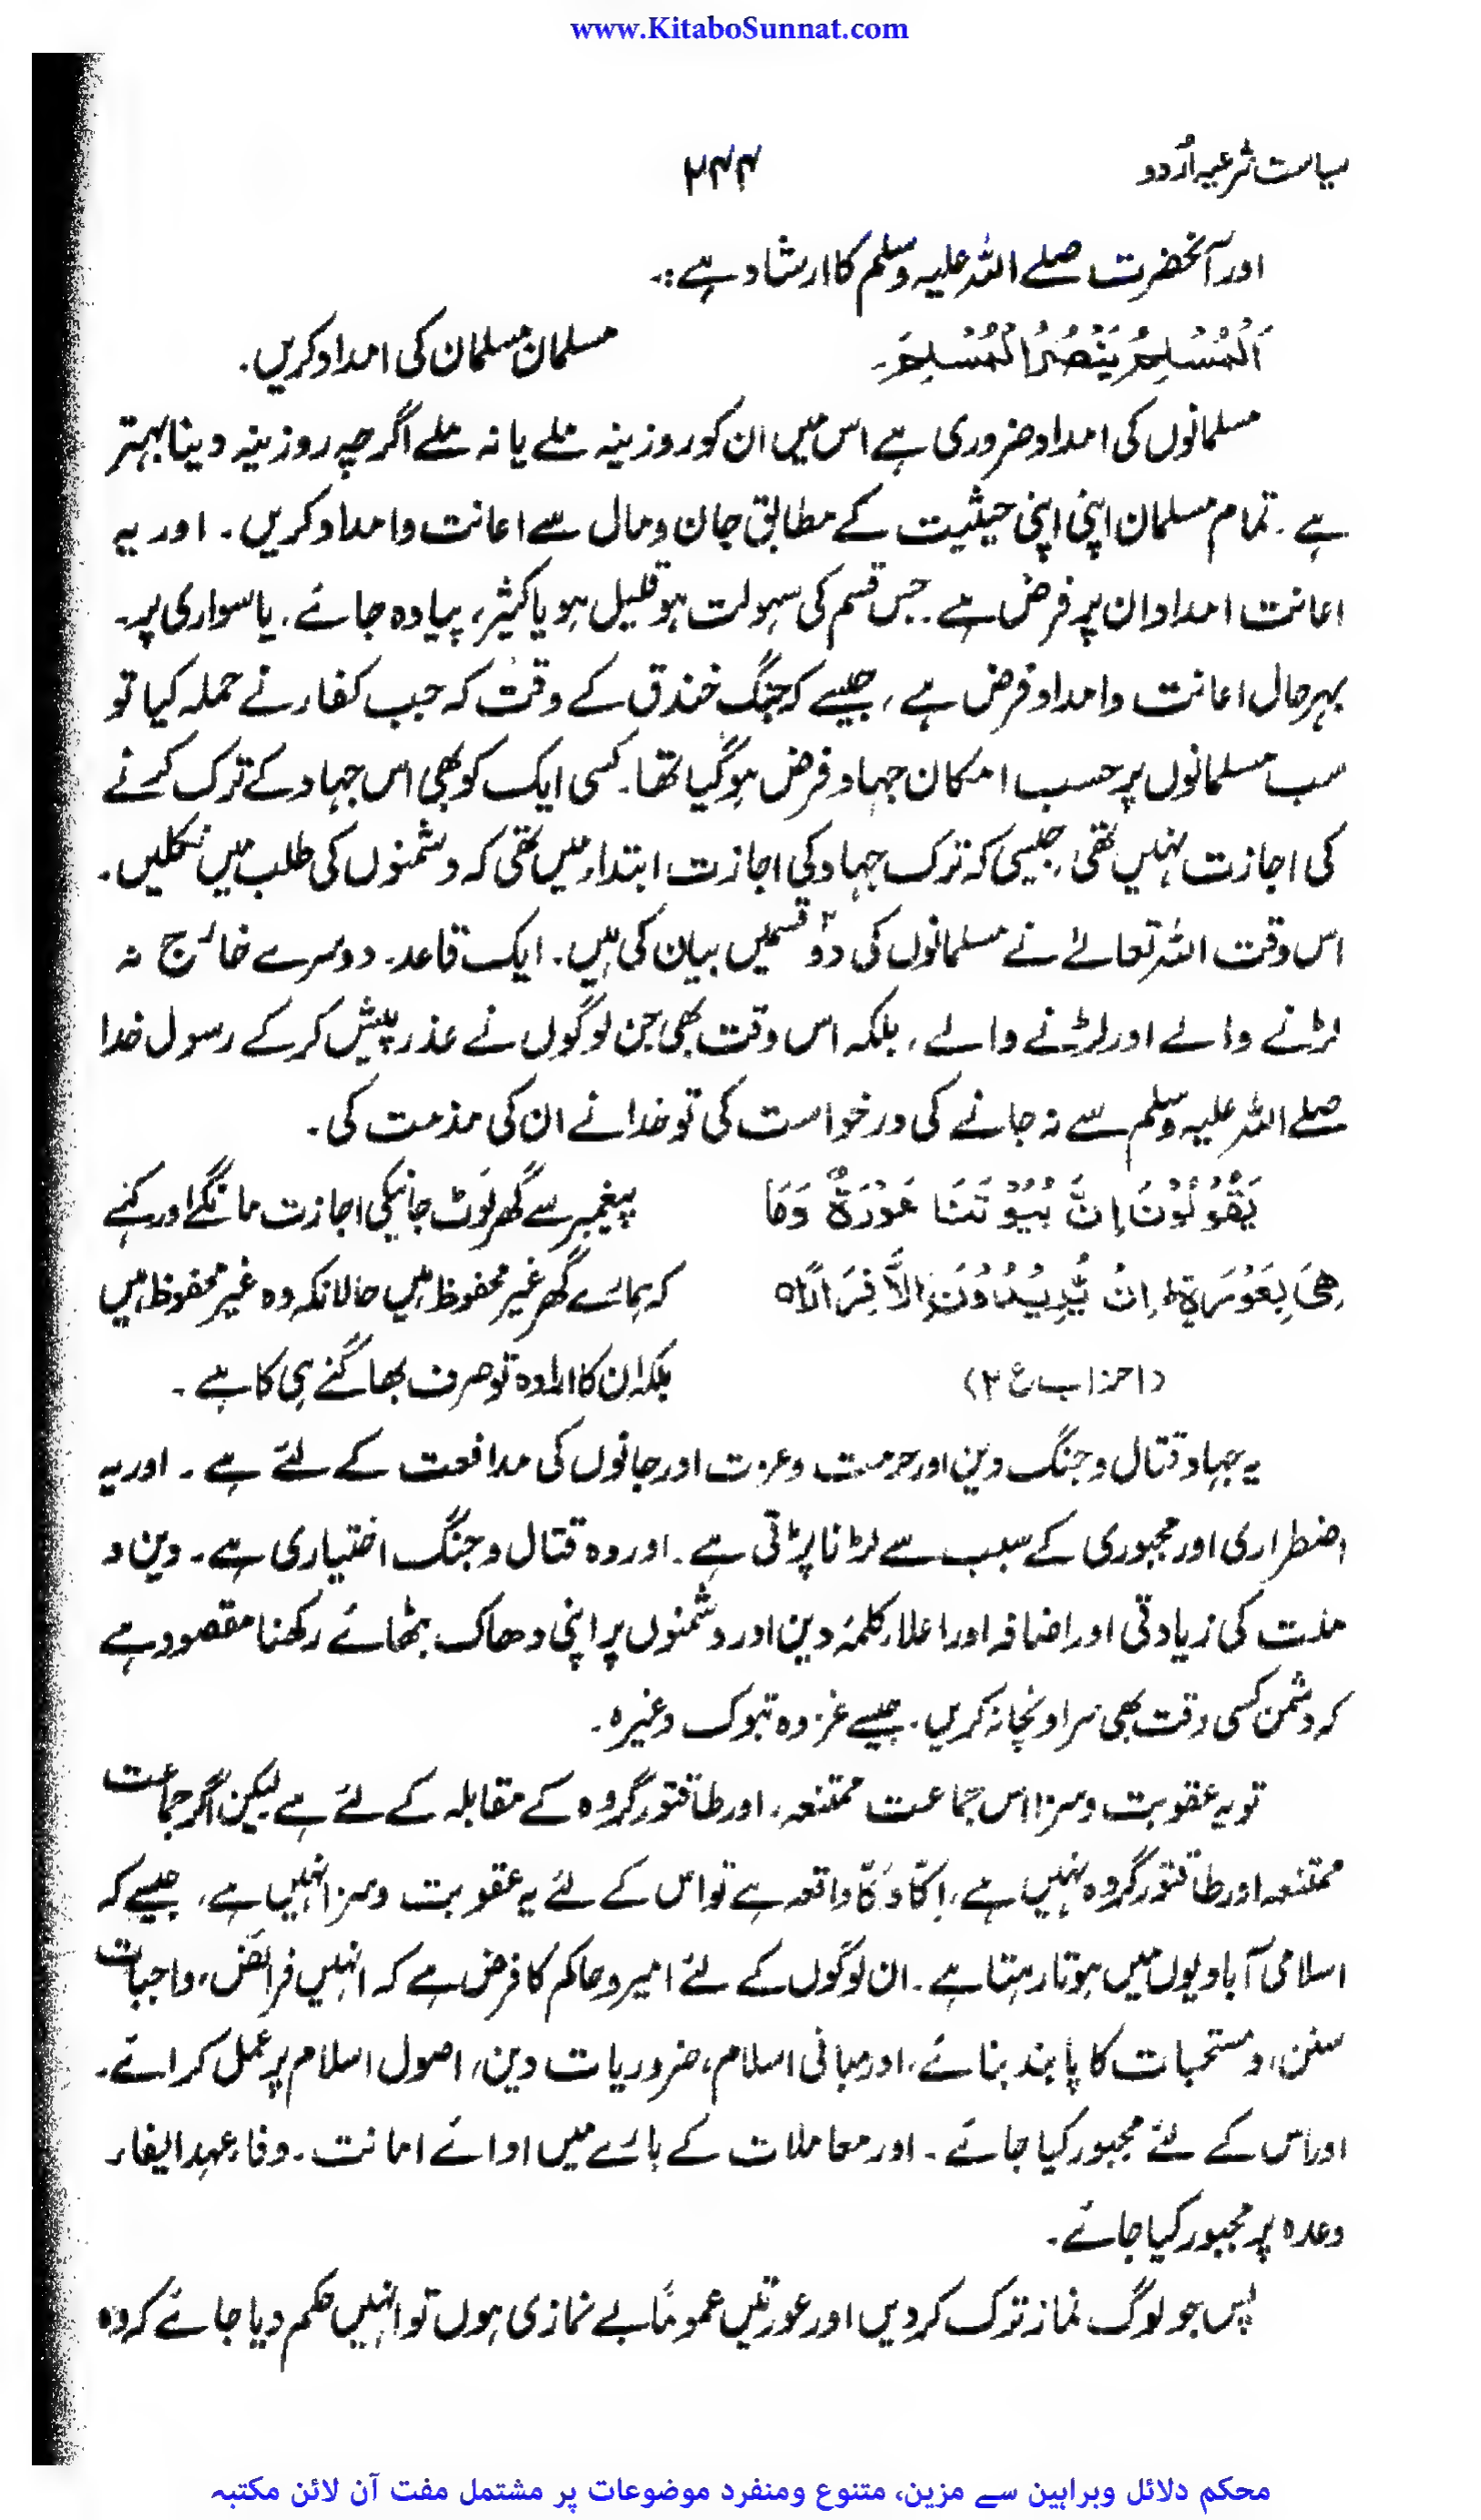 www.KitaboSunnat.com
سیاست شرعیہ اُردو
۲۴۴
اور آنحضرت صلے اللہ علیہ وسلم کا ارشاد ہے:۔
اَلْمُسْلِمُ يَنْصُرُ الْمُسْلِمَ۔ مسلمان مسلمان کی امداد کریں۔
مسلمانوں کی امداد ضروری ہے اس میں ان کو روزینہ ملے یا نہ ملے اگرچہ روزینہ دینا بہتر
ہے۔ تمام مسلمان اپنی اپنی حیثیت کے مطابق جان و مال سے اعانت و امداد کریں۔ اور یہ
اعانت امداد ان پر فرض ہے۔ جس قسم کی سہولت ہو قلیل ہو یا کثیر، پیادہ جائے۔ یا سواری پر۔
بہرحال اعانت و امداد فرض ہے، جیسے کہ جنگ خندق کے وقت کہ جب کفار نے حملہ کیا تو
سب مسلمانوں پر حسب امکان جہاد فرض ہوگیا تھا۔ کسی ایک کو بھی اس جہاد کے ترک کرنے
کی اجازت نہیں تھی، جیسی کہ ترک جہاد کی اجازت ابتداء میں تھی کہ دشمنوں کی طلب میں نکلیں۔
اس وقت اللہ تعالےٰ نے مسلمانوں کی دو۲ قسمیں بیان کی ہیں۔ ایک قاعد۔ دوسرے خارج نہ
لڑنے والے اور لڑنے والے، بلکہ اس وقت بھی جن لوگوں نے عذر پیش کر کے رسول خدا
صلے اللہ علیہ وسلم سے نہ جانے کی درخواست کی تو خدا نے ان کی مذمت کی۔
يَقُوْلُوْنَ اِنَّ بُيُوْتَنَا عَوْرَةٌ وَمَا پیغمبر سے گھر لَوٹ جانیکی اجازت مانگے اور کہنے
هِيَ بِعَوْرَةٍ ط اِنْ يُّرِيْدُوْنَ اِلَّا فِرَارًا ہ کہ ہمارے گھر غیر محفوظ ہیں حالانکہ وہ غیر محفوظ ہیں
(احزاب ع ۲) بلکہ ان کا ارادہ تو صرف بھاگنے ہی کا ہے۔
یہ جہاد قتال و جنگ دین اور حرمت و عزت اور جانوں کی مدافعت کے لئے ہے۔ اور یہ
اضطراری اور مجبوری کے سبب سے لڑنا پڑتی ہے۔ اور وہ قتال و جنگ اختیاری ہے۔ دین و
ملت کی زیادتی اور اضافہ اور اعلاء کلمۂ دین اور دشمنوں پر اپنی دھاک بٹھائے رکھنا مقصود ہے
کہ دشمن کسی وقت بھی سر اونچا نہ کریں۔ جیسے غزوہ تبوک وغیرہ۔
تو یہ عقوبت و سزا اس جماعت ممتنعہ، اور طاقتور گروہ کے مقابلہ کے لئے ہے لیکن اگر جماعت
ممتنعہ اور طاقتور گروہ نہیں ہے، اِکّا دُکّا واقعہ ہے تو اس کے لئے یہ عقوبت و سزا نہیں ہے، جیسے کہ
اسلامی آبادیوں میں ہوتا رہتا ہے۔ ان لوگوں کے لئے امیر و حاکم کا فرض ہے کہ انہیں فرائض، واجبات
سنن، و مستحبات کا پابند بنائے، اور مبانی اسلام، ضروریات دین، اصول اسلام پر عمل کرائے۔
اور اس کے لئے مجبور کیا جائے۔ اور معاملات کے بارے میں ادائے امانت۔ وفاء عہد ایفاء
وعدہ پر مجبور کیا جائے۔
پس جو لوگ نماز ترک کر دیں اور عورتیں عموماً بے نمازی ہوں تو انہیں حکم دیا جائے کہ وہ
محکم دلائل وبراہین سے مزین، متنوع ومنفرد موضوعات پر مشتمل مفت آن لائن مکتبہ